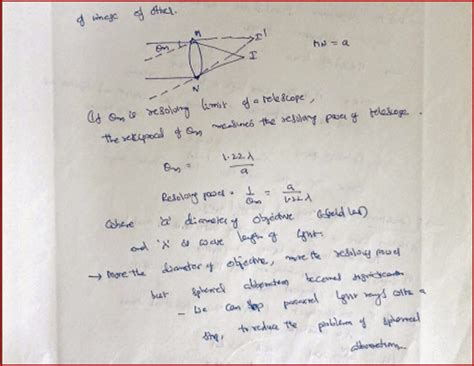 of image of other.
M I'
θm I MN = a
N
If θm is resolving limit of a telescope,
the reciprocal of θm measures the resolving power of telescope.
θm = 1.22 λ / a
Resolving power = 1/θm = a / 1.22 λ
where 'a' diameter of objective
and 'λ' is wave length of light.
→ More the diameter of objective, more the resolving power
but spherical aberration becomes significant
- We can stop paraxial light rays with a
stop, to reduce the problem of spherical
aberration.